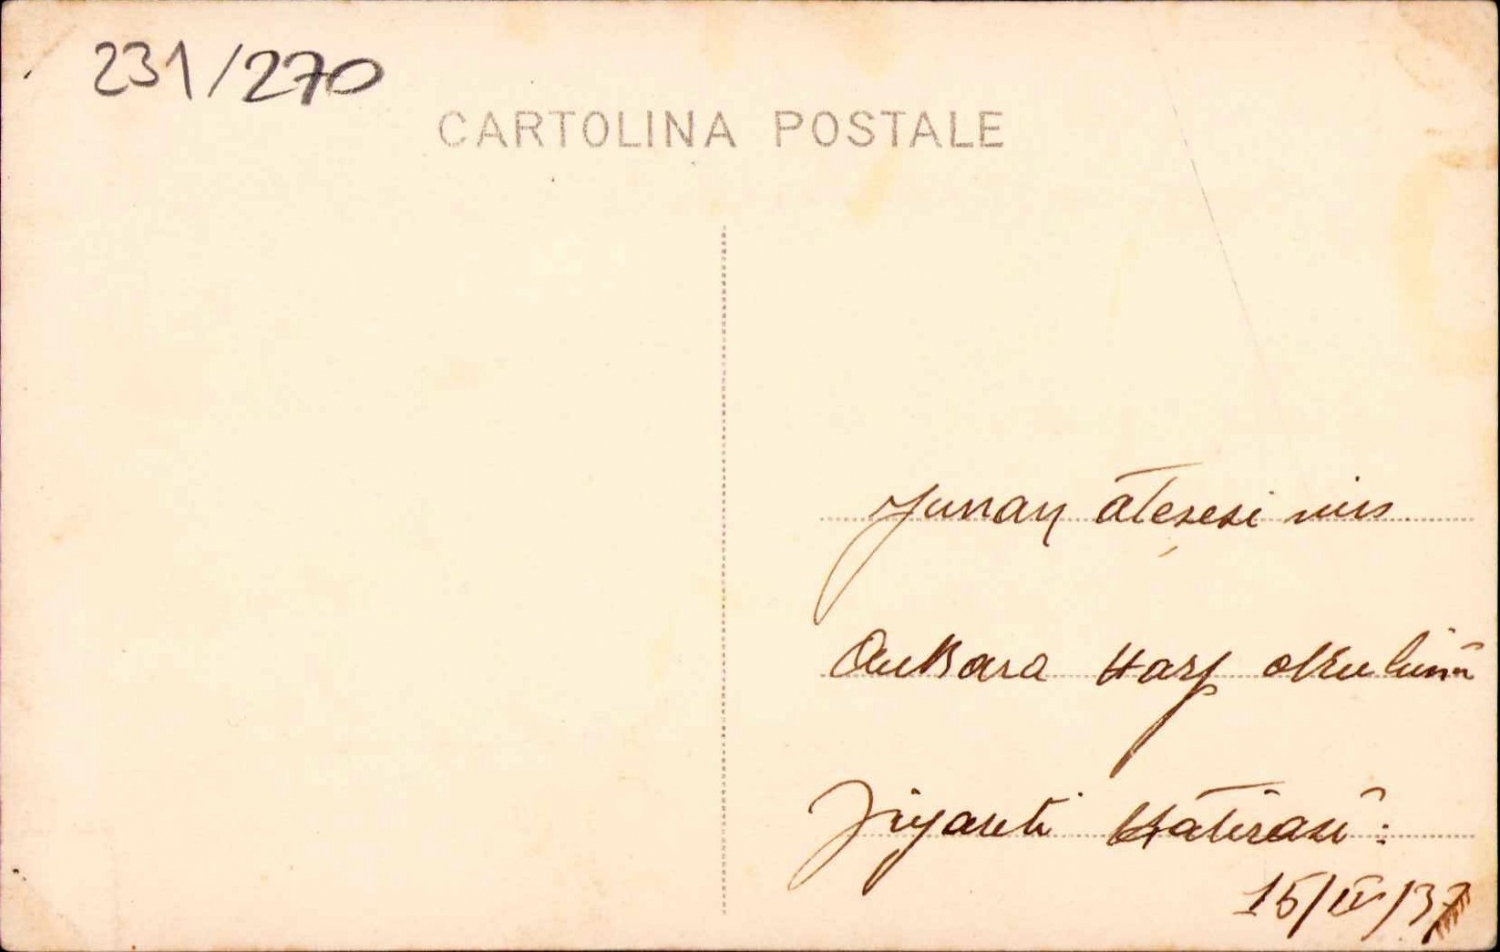 231/270
CARTOLINA POSTALE
Yunan ateşesi nin
Ankara Harp okulunu
Ziyareti Hatırası:
15/IV/37